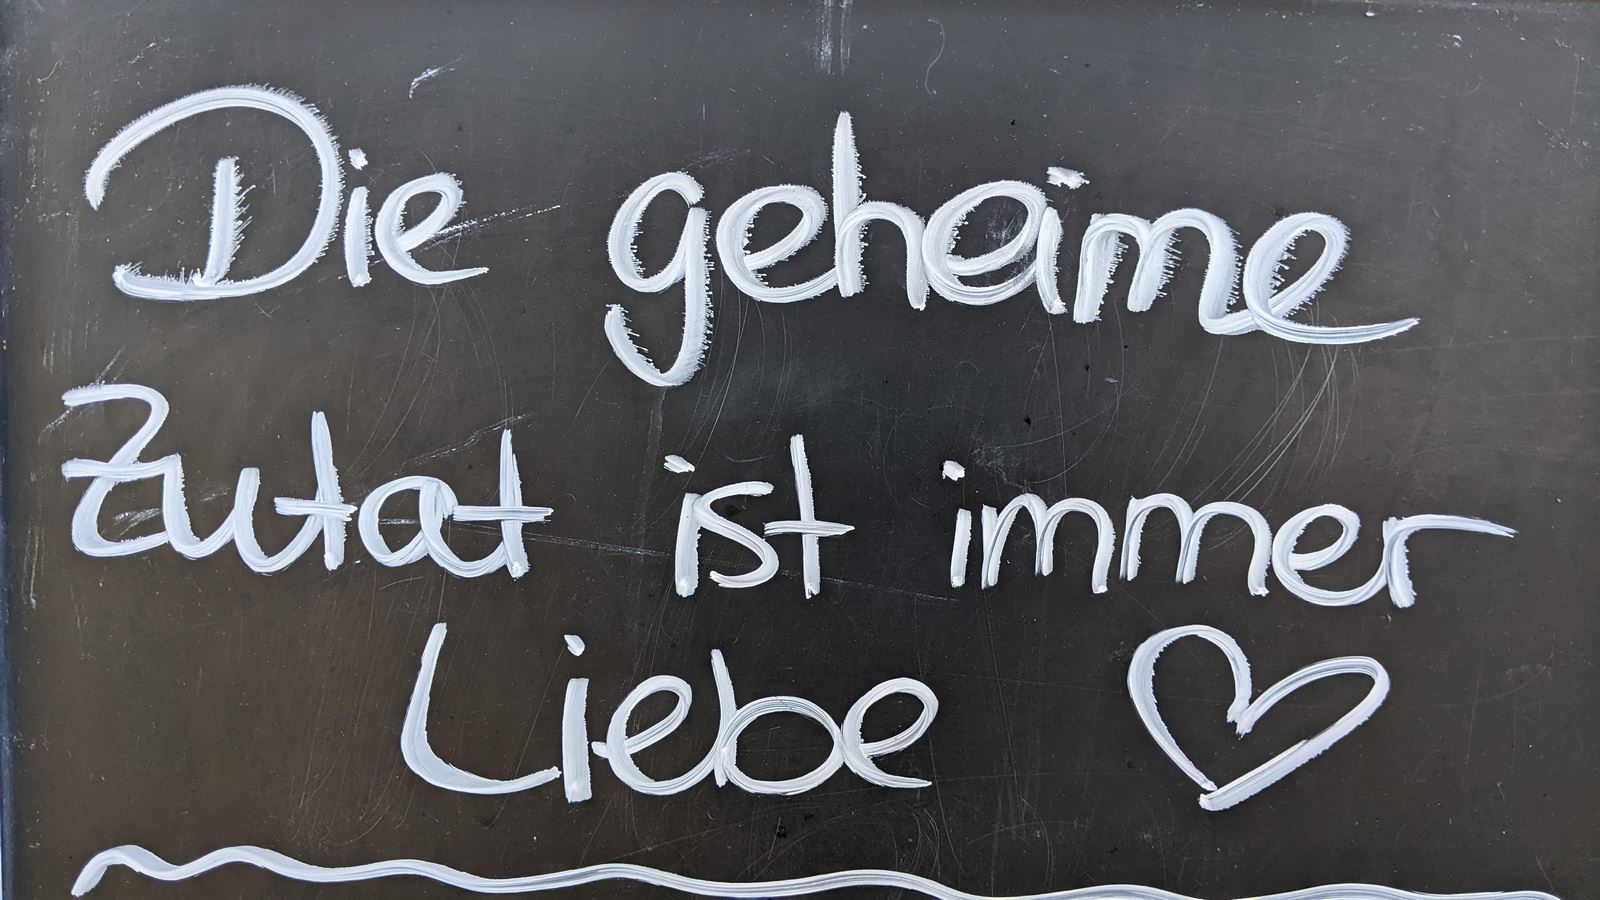 Die geheime
Zutat ist immer
Liebe ♡